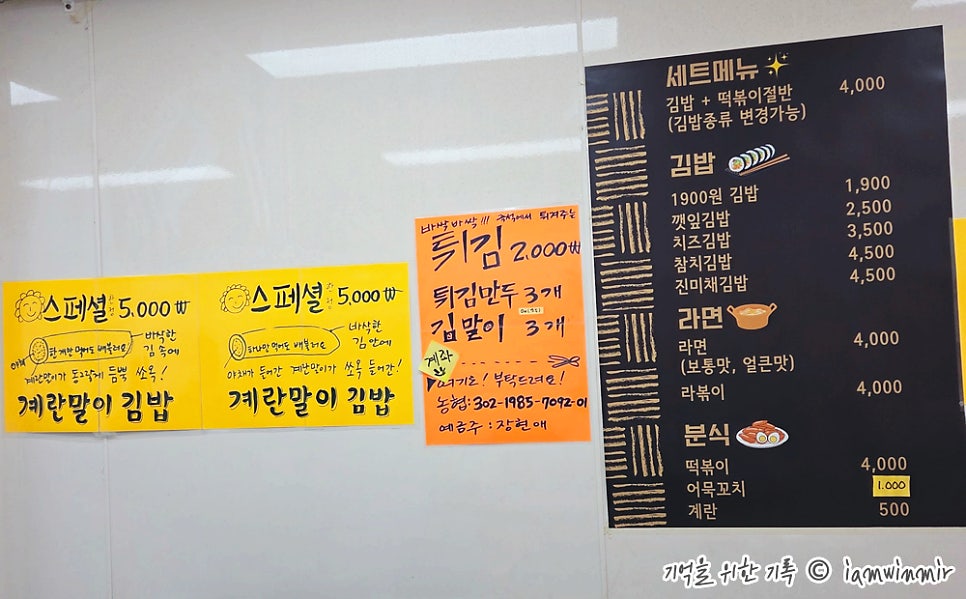 스페셜
5,000₩
바삭한
김 속에
한개만 먹어도 배불러요
계란말이가 동그랗게 듬뿍 쏘옥!
계란말이 김밥
스페셜
5,000₩
바삭한
김 안에
하나만 먹어도 배불러요
야채가 들어간 계란말이가 쏘옥 들어간!
계란말이 김밥
바삭바삭!!! 즉석에서 튀겨주는
튀김 2,000₩
튀김만두 3개
김말이 3개
계좌
여기요! 부탁드려요!
농협:302-1985-7092-01
예금주 : 장현애
세트메뉴
김밥 + 떡볶이절반 4,000
(김밥종류 변경가능)
김밥
1900원 김밥 1,900
깻잎김밥 2,500
치즈김밥 3,500
참치김밥 4,500
진미채김밥 4,500
라면
라면 4,000
(보통맛, 얼큰맛)
라볶이 4,000
분식
떡볶이 4,000
어묵꼬치 1,000
계란 500
기억을 위한 기록 © iamwinmir